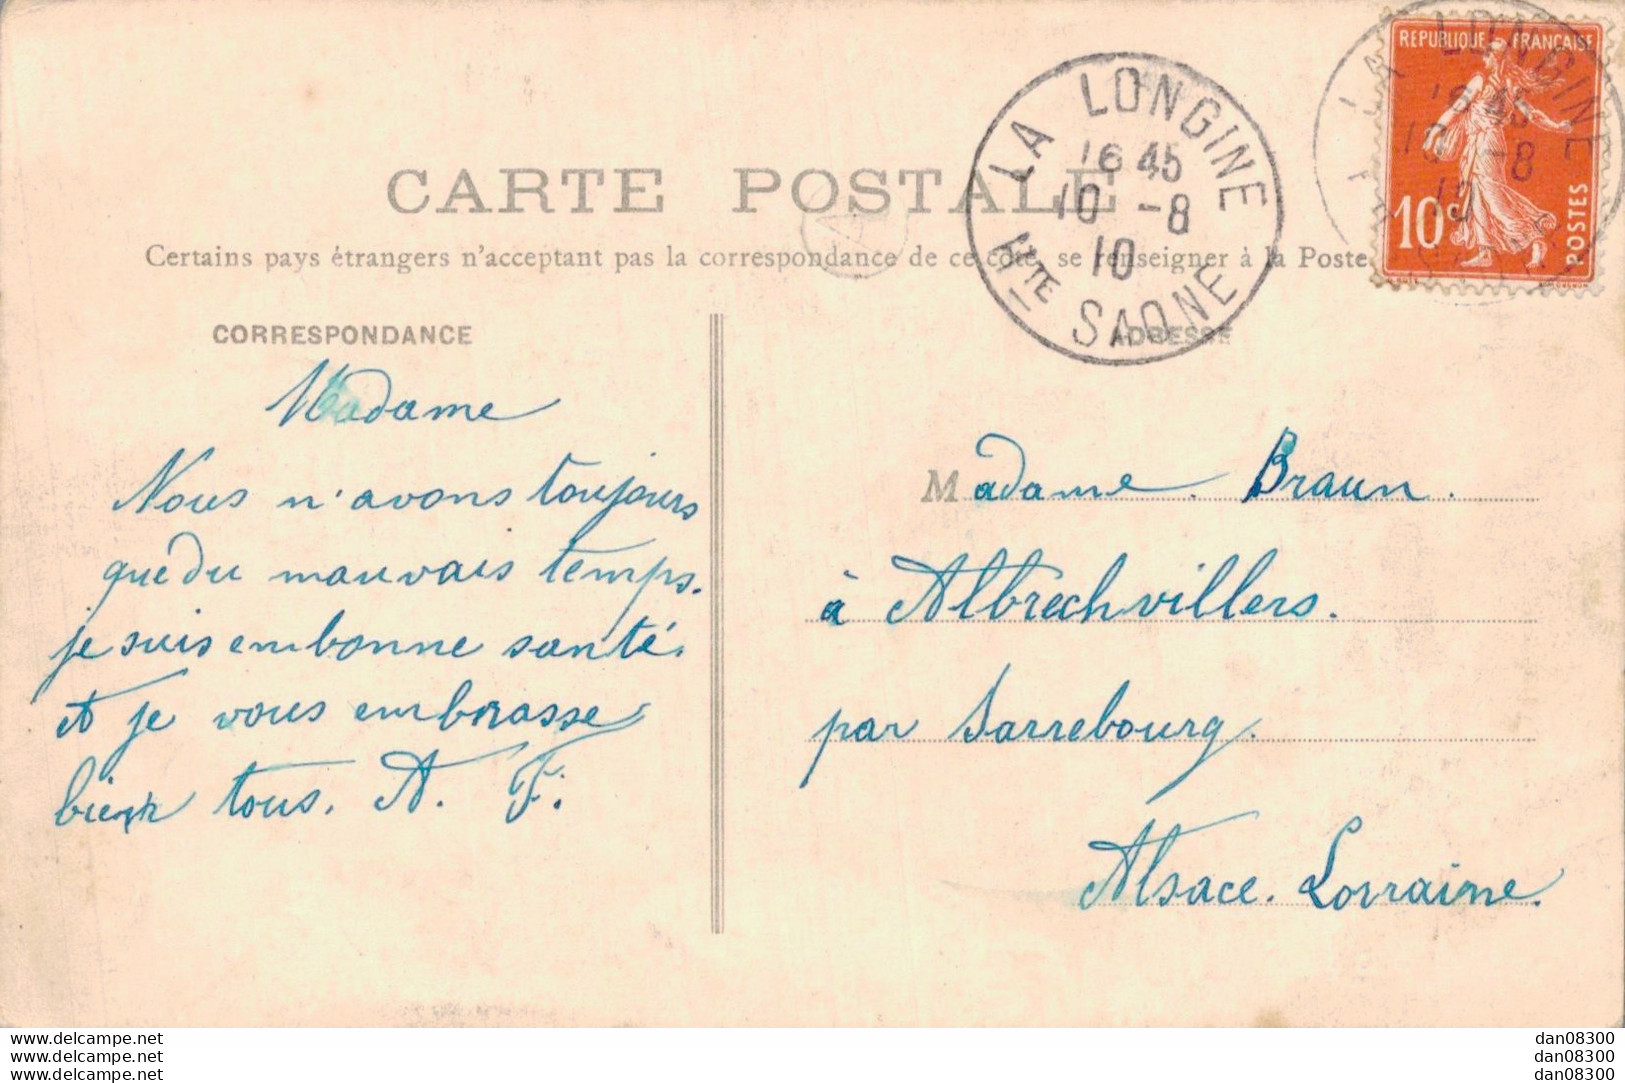 CARTE POSTALE
Certains pays étrangers n'acceptant pas la correspondance de ce côté, se renseigner à la Poste
CORRESPONDANCE
ADRESSE
LA LONGINE
16 45
10 -8
10
Hte SAONE
REPUBLIQUE FRANÇAISE
10c
POSTES
LA LONGINE
16 45
10 -8
10
Madame
Nous n'avons toujours
que du mauvais temps.
je suis em bonne santé.
et je vous embrasse
bien tous. A. F.
Madame. Braun.
à Albrechvillers.
par Sarrebourg.
Alsace. Lorraine.
www.delcampe.net
www.delcampe.net
www.delcampe.net
dan08300
dan08300
dan08300